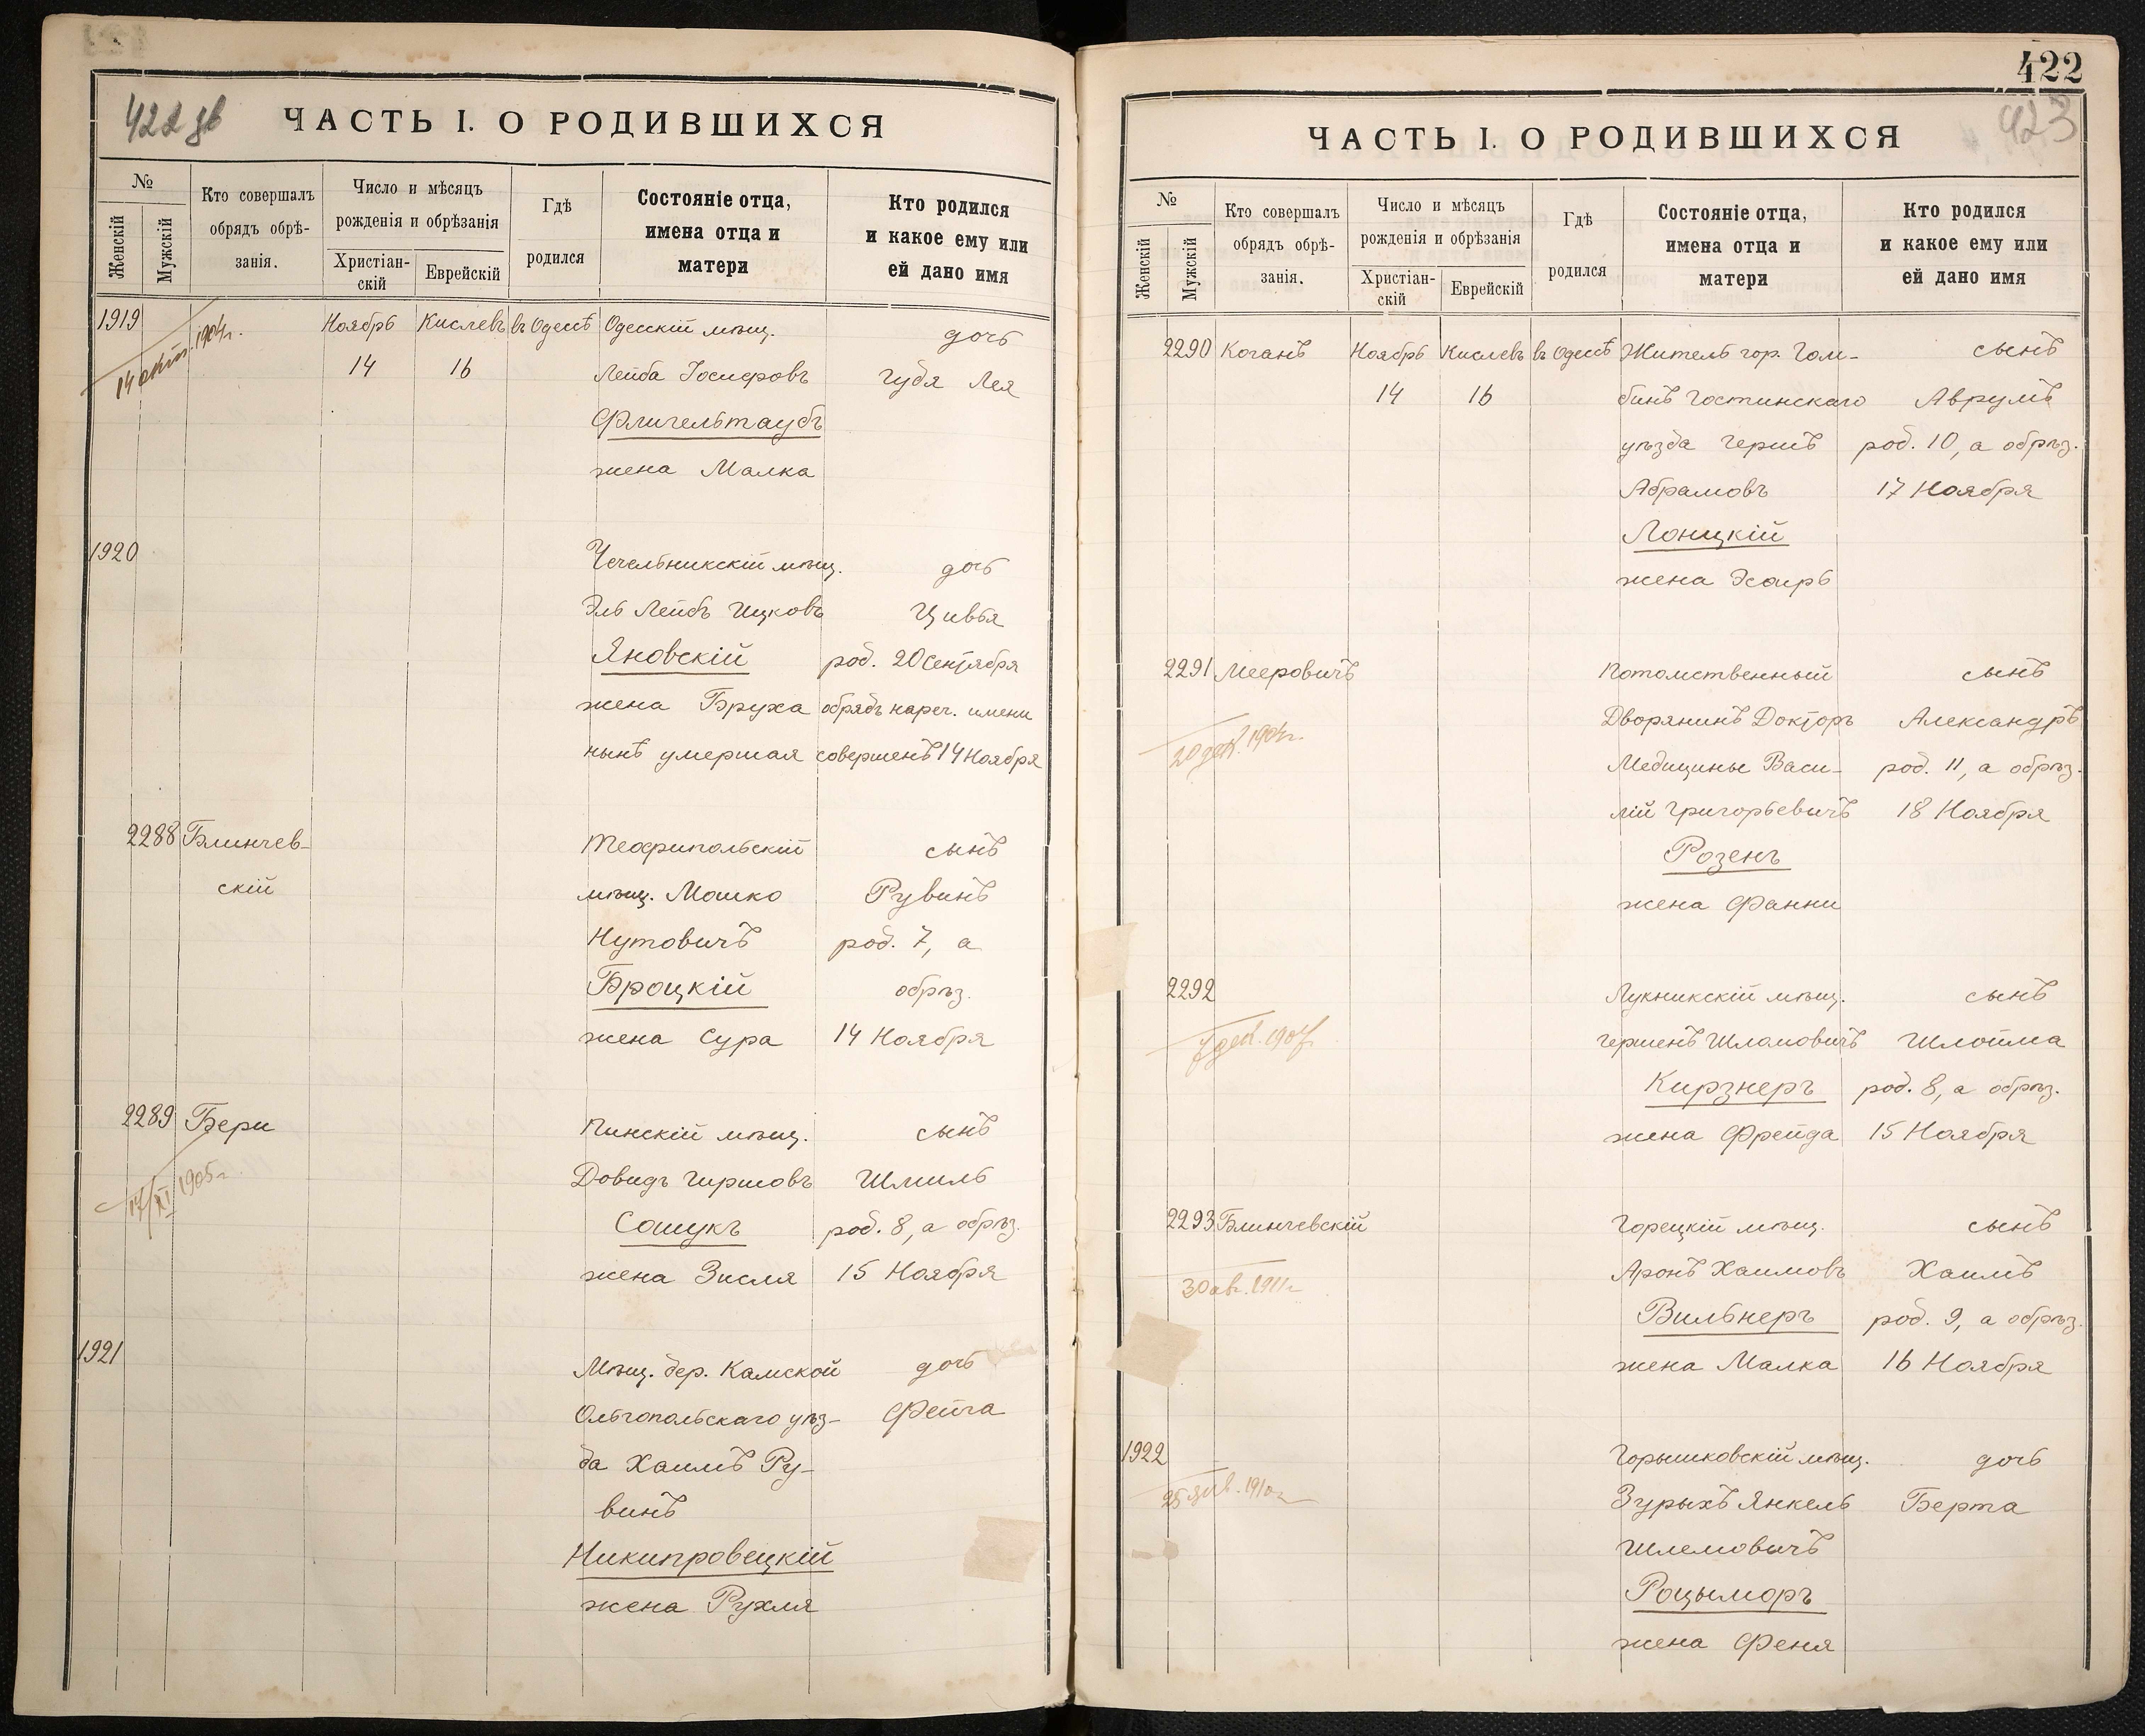 422 дв
ЧАСТЬ I. О РОДИВШИХСЯ
№
Женскій
Мужскій
Кто совершалъ
обрядъ обрѣ-
занія.
Число и мѣсяцъ
рожденія и обрѣзанія
Христіан-
скій
Еврейскій
Гдѣ
родился
Состояніе отца,
имена отца и
матери
Кто родился
и какое ему или
ей дано имя
1919 Ноябрь Кислевъ въ Одессѣ Одесскій мѣщ. дочь
14 1904г.
14 16 Лейба Іосифовъ Гудя Лея
Флигельтаубъ
жена Малка
1920 Чечельникскій мѣщ. дочь
Эль Лейбъ Ицковъ Цивья
Яновскій род. 20 Сентября
жена Бруха обрядъ нареч. имени
нынѣ умершая совершенъ 14 Ноября
2288 Блинчев- Теофипольскій сынъ
скій мѣщ. Мошко Рувинъ
Нутовичъ род. 7, а
Броцкій обрѣз.
жена Сура 14 Ноября
2289 Бери Пинскій мѣщ. сынъ
17/XI 1905г. Довидъ Гиршовъ Шмиль
Сошукъ род. 8, а обрѣз.
жена Зисля 15 Ноября
1921 Мѣщ. дер. Камской дочь
Ольгопольскаго уѣз- Фейга
да Хаимъ Ру-
винъ
Никипровецкій
жена Рухля
422
423
ЧАСТЬ I. О РОДИВШИХСЯ
№
Женскій
Мужскій
Кто совершалъ
обрядъ обрѣ-
занія.
Число и мѣсяцъ
рожденія и обрѣзанія
Христіан-
скій
Еврейскій
Гдѣ
родился
Состояніе отца,
имена отца и
матери
Кто родился
и какое ему или
ей дано имя
2290 Коганъ Ноябрь Кислевъ въ Одессѣ Житель гор. Гом- сынъ
14 16 бинъ Гостинскаго Аврумъ
уѣзда Гершъ род. 10, а обрѣз.
Абрамовъ 17 Ноября
Лоницкій
жена Эсѳирь
2291 Мееровичъ Потомственный сынъ
20 дек. 1904г. Дворянинъ Докторъ Александръ
Медицины Васи- род. 11, а обрѣз.
лій Григорьевичъ 18 Ноября
Розенъ
жена Фанни
2292 Лукникскій мѣщ. сынъ
7 дек. 1904 Гершенъ Шломовичъ Шлойма
Кирзнеръ род. 8, а обрѣз.
жена Фрейда 15 Ноября
2293 Блинчевскій Горецкій мѣщ. сынъ
30 ав. 1911г. Аронъ Хаимовъ Хаимъ
Вильнеръ род. 9, а обрѣз.
жена Малка 16 Ноября
1922 Горышковскій мѣщ. дочь
25 янв. 1910г. Зурыхъ Янкель Берта
Шлемовичъ
Роцыморъ
жена Феня